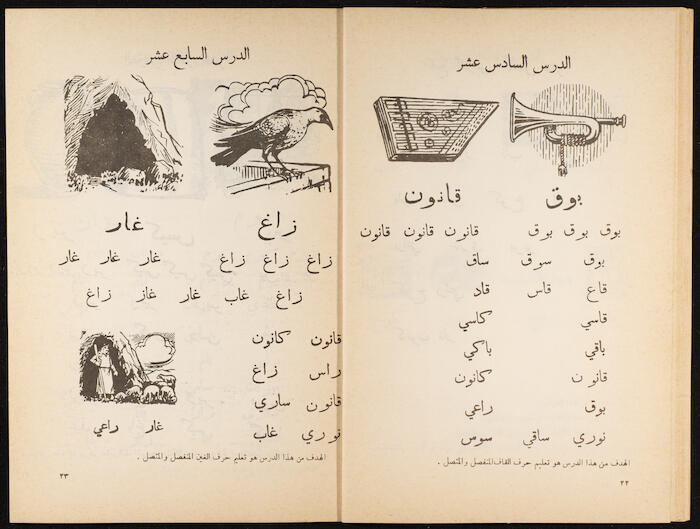 الدرس السادس عشر
بوق قانون
بوق بوق بوق قانون قانون قانون
بوق سوق ساق
قاع قاس قاد
قاسي كاسي
باقي باكي
قانون كانون
بوق راعي
نوري ساقي سوس
الهدف من هذا الدرس هو تعليم حرف القاف المنفصل والمتصل .
٢٢
الدرس السابع عشر
زاغ غار
زاغ زاغ زاغ غار غار غار
زاغ غاب غار غاز زاغ
قانون كانون
راس زاغ
قانون ساري
نوري غاب
غار راعي
الهدف من هذا الدرس هو تعليم حرف الغين المنفصل والمتصل .
٢٣